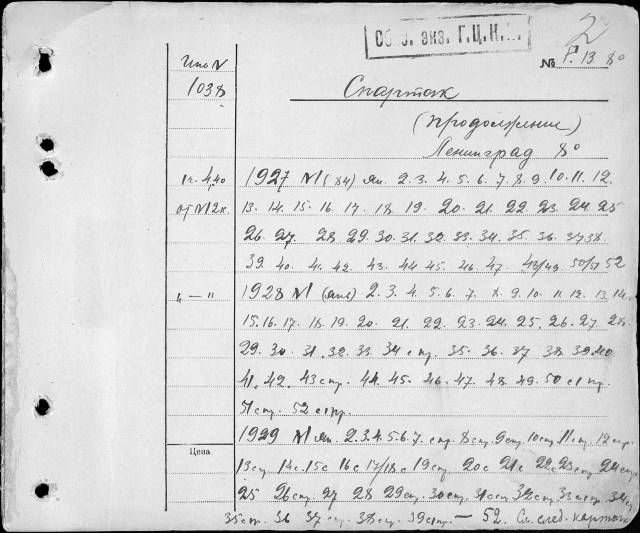 2
Обяз. экз. Г.Ц.К.П.
№ Р. 13 8°
Инв N
1038
Спартак
(продолжение)
Ленинград 8°
1927 N1 (84) ян. 2. 3. 4. 5. 6. 7. 8. 9. 10. 11. 12.
от N 12к. 13. 14. 15. 16. 17. 18. 19. 20. 21. 22. 23. 24. 25
26. 27. 28. 29. 30. 31. 32. 33. 34. 35. 36. 37 38.
39. 40. 41. 42. 43. 44 45. 46. 47. 48/49. 50/51 52
" — " 1928 N1 (янв) 2. 3. 4. 5. 6. 7. 8. 9. 10. 11 12. 13. 14.
15. 16. 17. 18. 19. 20. 21. 22. 23. 24. 25. 26. 27. 28.
29. 30. 31. 32. 33. 34 стр. 35. 36. 37 38 39. 40.
41. 42. 43 стр. 44. 45. 46. 47. 48. 49. 50 стр.
51 стр. 52 стр.
1929 N1 ян. 2. 3. 4. 5. 6. 7. стр. 8 стр. 9 стр. 10 стр. 11 стр. 12 стр.
Цена
13 стр. 14 с. 15 с 16 с 17/18 с 19 стр. 20 с 21 с 22 с 23 стр. 24 стр
25 26 стр. 27 28 29 стр. 30 стр. 31 стр 32 стр. 33 стр. 34 с
35 стр. 36 37 стр. 38 стр. 39 стр. — 52. См. след. карточку